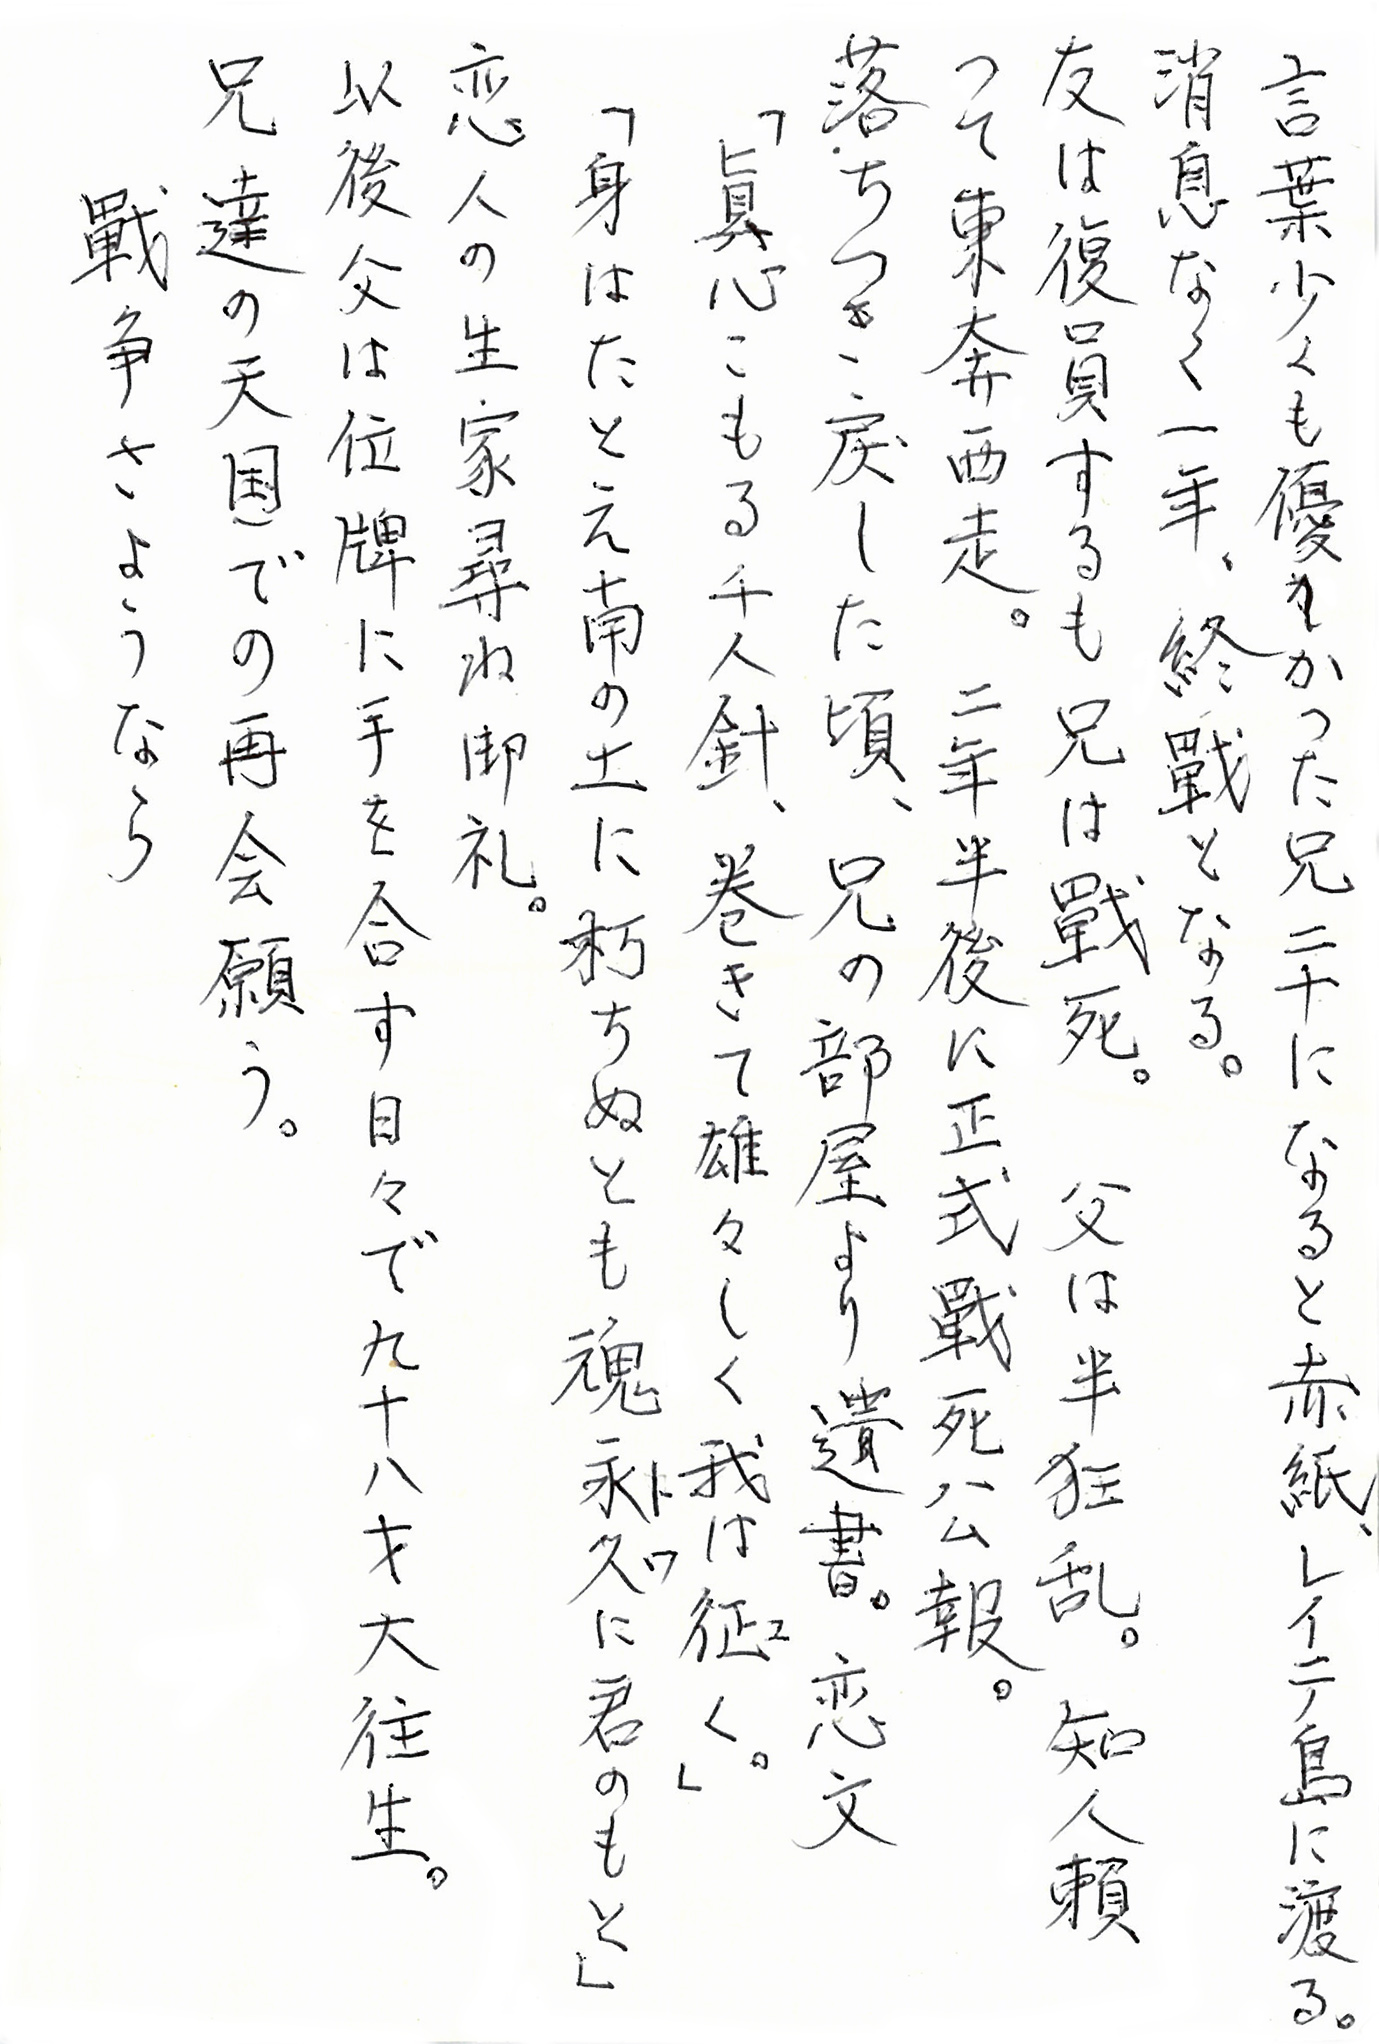 言葉少くも優しかった兄二十になると赤紙、レイテ島に渡る。
消息なく一年、終戰となる。
友は復員するも兄は戰死。　父は半狂乱。　知人頼
つて東奔西走。　二年半後に正式戰死公報。
落ちつき戻した頃、兄の部屋より遺書。　恋文
「眞心こもる千人針、巻きて雄々しく我は征く。」
エ
「身はたとえ南の土に朽ちぬとも魂永久に君のもと」
トワ
恋人の生家尋ね御礼。
以後父は位牌に手を合す日々で九十八才大往生。
兄達の天国での再会願う。
戰争さようなら